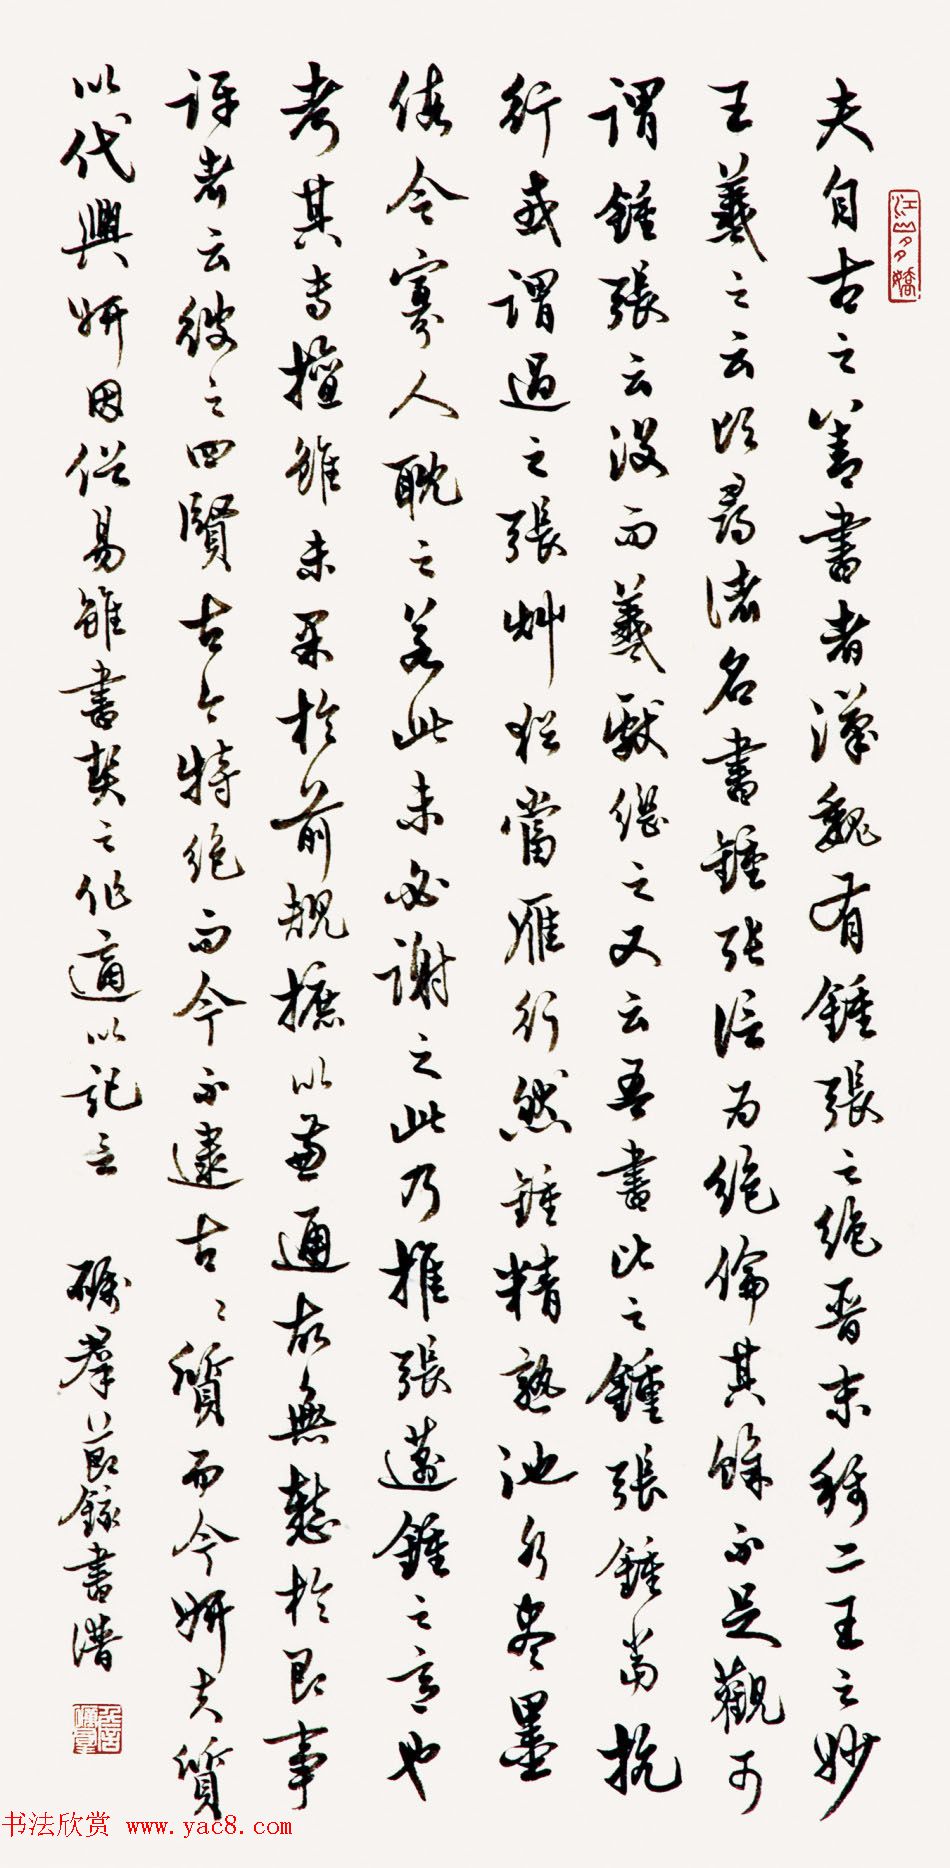 江山多嬌
夫自古之善書者漢魏有鍾張之絕晉末稱二王之妙
王羲之云頃尋諸名書鍾張信為絕倫其餘不足觀可
謂鍾張云沒而羲獻繼之又云吾書比之鍾張鍾當抗
行或謂過之張艸猶當雁行然鍾精熟池水盡墨
假令寡人耽之若此未必謝之此乃推張邁鍾之意也
考其專擅雖未果於前規摭以兼通故無慙於即事
評者云彼之四賢古今特絕而今不逮古〻質而今妍夫質
以代興妍因俗易雖書契之作適以記言 礪羣節錄書譜
书法欣赏 www.yac8.com